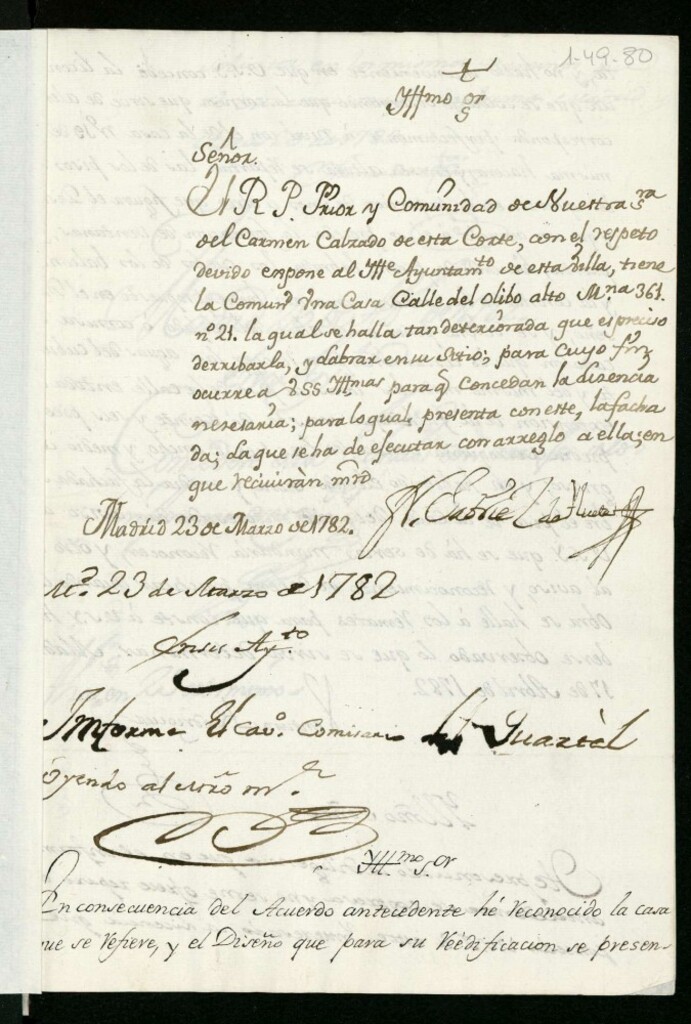 1-49-80
Yllmo Sor
Señor.
El R P. Prior y Comunidad de Nuestra Sra
del Carmen Calzado de esta Corte, con el respeto
devido expone al Ille Ayuntamto de esta Villa, tiene
la Comund Vna Casa Calle del Olibo alto Mna 361.
nº 21. la qual se halla tan deteriorada que es preciso
derribarla, y labrar en su Sitio; para cuyo fin
ocurre a VSS Yllmas para q concedan la licencia
nesesaria; para lo qual, presenta con este, la facha
da; la que se ha de efecutar con arreglo a ella; en
que reciviràn mrd
Madrid 23 de Marzo de 1782.
Md. 23 de Marzo de 1782
En su Aytto
Informe El Cavo. Comisario del Quartèl
oyendo al Mrõ mr
Yllmo Sor
En consecuencia del Acuerdo antecedente hé reconocido la casa
que se refiere, y el Diseño que para su reedificacion se presen-